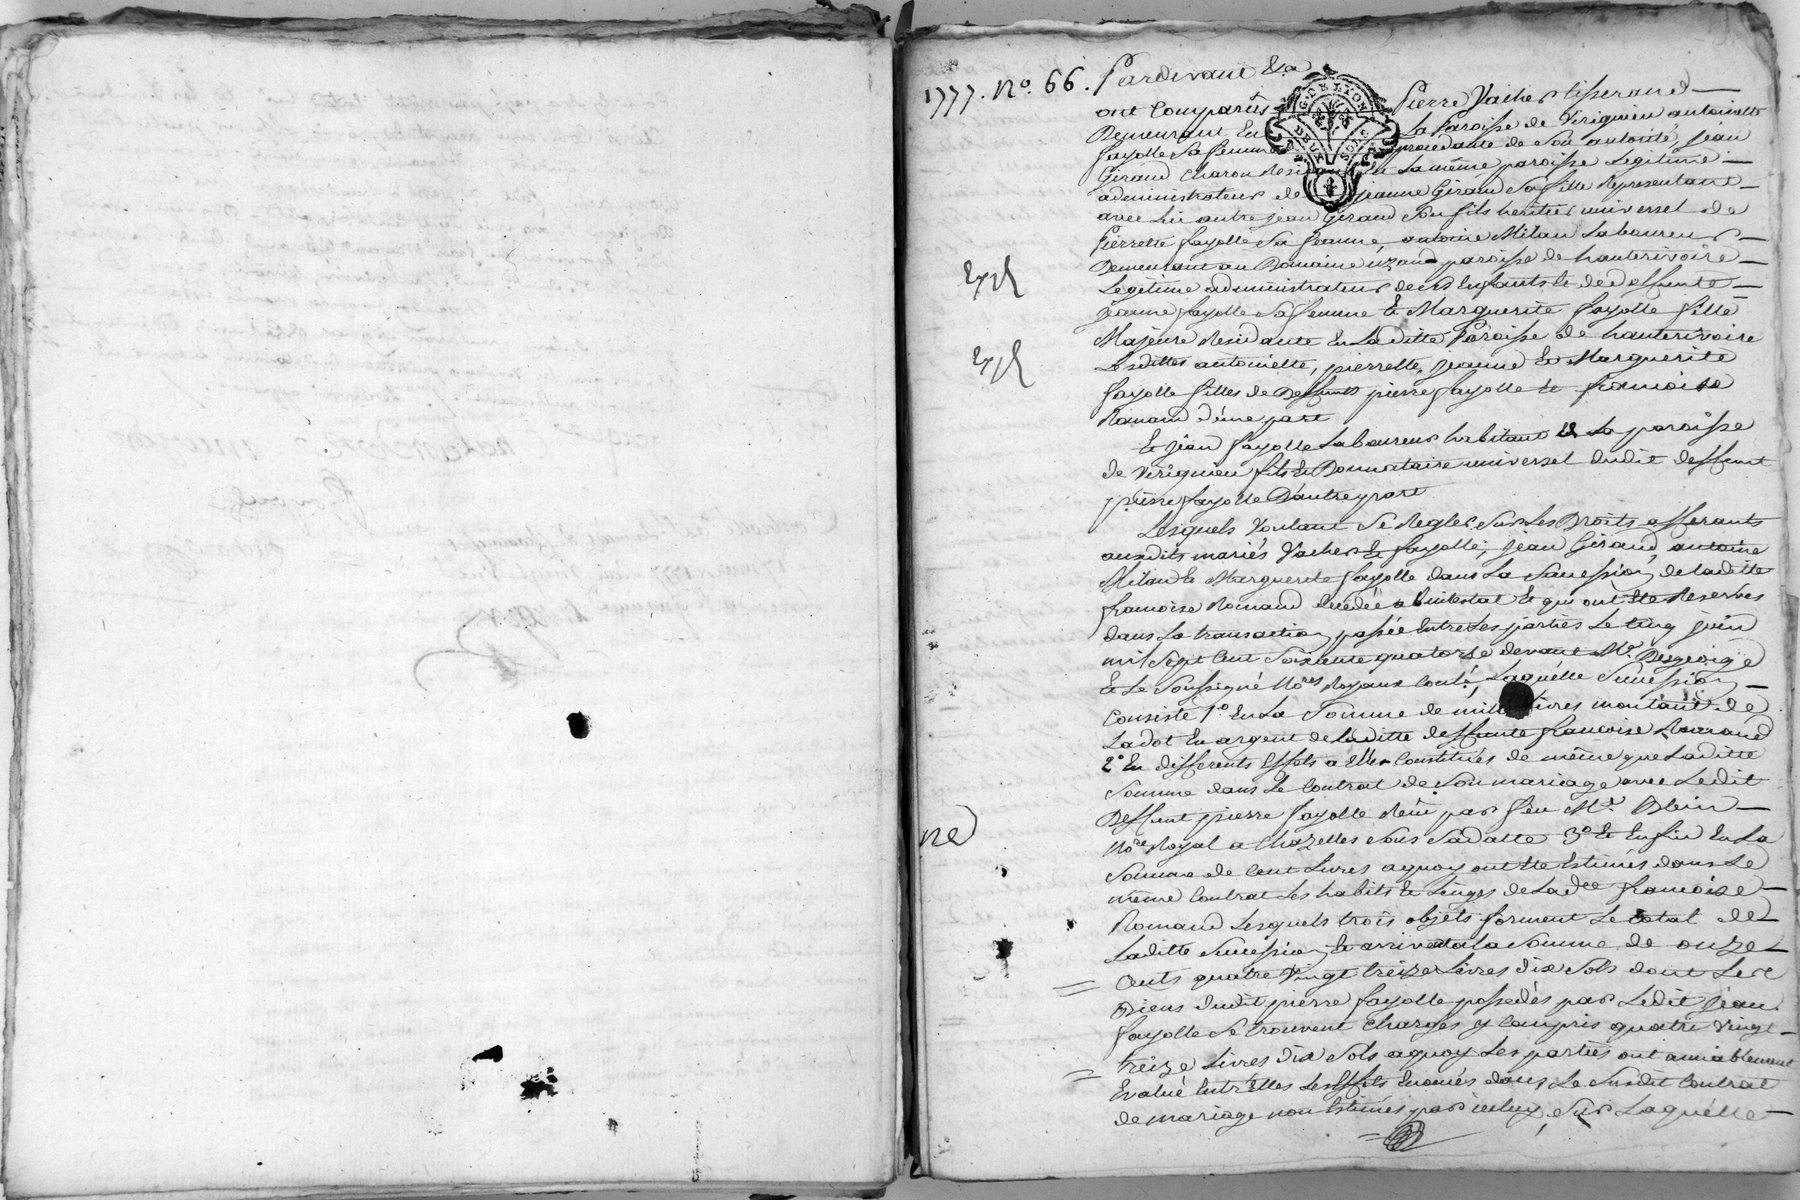 1777. No. 66. Pardevant &a
ont Comparûs Pierre Vacher tisserand
G. DE LYON
DEUX SOLS
Demeurant En La Paroisse de Virignieu antoinette
fayolle Sa femme procedante de Son autorité, Jean
Giraud charon Residant En La même paroisse Legitime
administrateur de Jeanne Giraud Sa fille Representant
avec Lui autre jean Giraud Son fils heritier universel de
Pierrette fayolle Sa femme, antoine Milan Laboureur
Demeurant au Domaine paroisse de hauterivoire
Legitime administrateur de ses Enfants & de deffunte
jeanne fayolle Sa femme & Marguerite fayolle fille
Majeure Residante En Laditte Paroisse de hauterivoire
Lesdittes antoinette, pierrette, jeanne & Marguerite
fayolle filles de Deffunts pierre fayolle & francoise
Romand d'une part
Et jean fayolle Laboureur habitant La paroisse
de Virignieu fils & Donnataire universel dudit deffunt
pierre fayolle D'autre part
Lesquels Voulant Se Regler Sur Les Droits afferants
auxdits mariés Vacher & fayolle, jean Giraud, antoine
Milan & Marguerite fayolle dans La Succession de laditte
francoise Romand decedée abintestat & qui ont Eté Reservés
dans La transaction passée Entre Les parties Le Cinq juin
mil Sept Cent Soixante quatorze devant Me. Desgeorge
& Le Soussigné Nores Royaux Conté, Laquelle Succession
Consiste 1o. En La Somme de mille Livres montant de
La dot En argent de laditte deffunte francoise Romand
2o En differents Effets a Elle Constitués de même que Laditte
Somme dans Le Contrat de Son mariage avec Ledit
Deffunt pierre fayolle Reçu par feu Me. Blein
Nore Royal a Chazelles Sous Sa datte 3o & Enfin En La
Somme de Cent Livres a quoy ont Eté Estimés dans Le
même Contrat Les habits & Linges de La dee francoise
Romand Lesquels trois objets forment Le total de
Laditte Succession & arrivent a la Somme de onze
Cents quatre Vingt treize Livres dix Sols dont Les
Biens dudit pierre fayolle possedés par Ledit Jean
fayolle Se trouvent chargés y Compris quatre Vingt
treize Livres dix Sols a quoy Les parties ont amiablement
Evalué Entr'elles Les Effets Enoncés dans Le Susdit Contrat
de mariage non Estimés par icelluy, Sur Laquelle